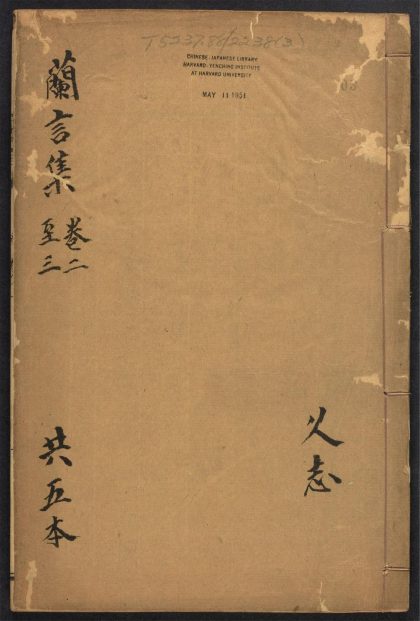 T5237.86/2238(3)
CHINESE-JAPANESE LIBRARY
HARVARD-YENCHING INSTITUTE
AT HARVARD UNIVERSITY
MAY 11 1951
志
蘭言集
卷二
至三
共五本